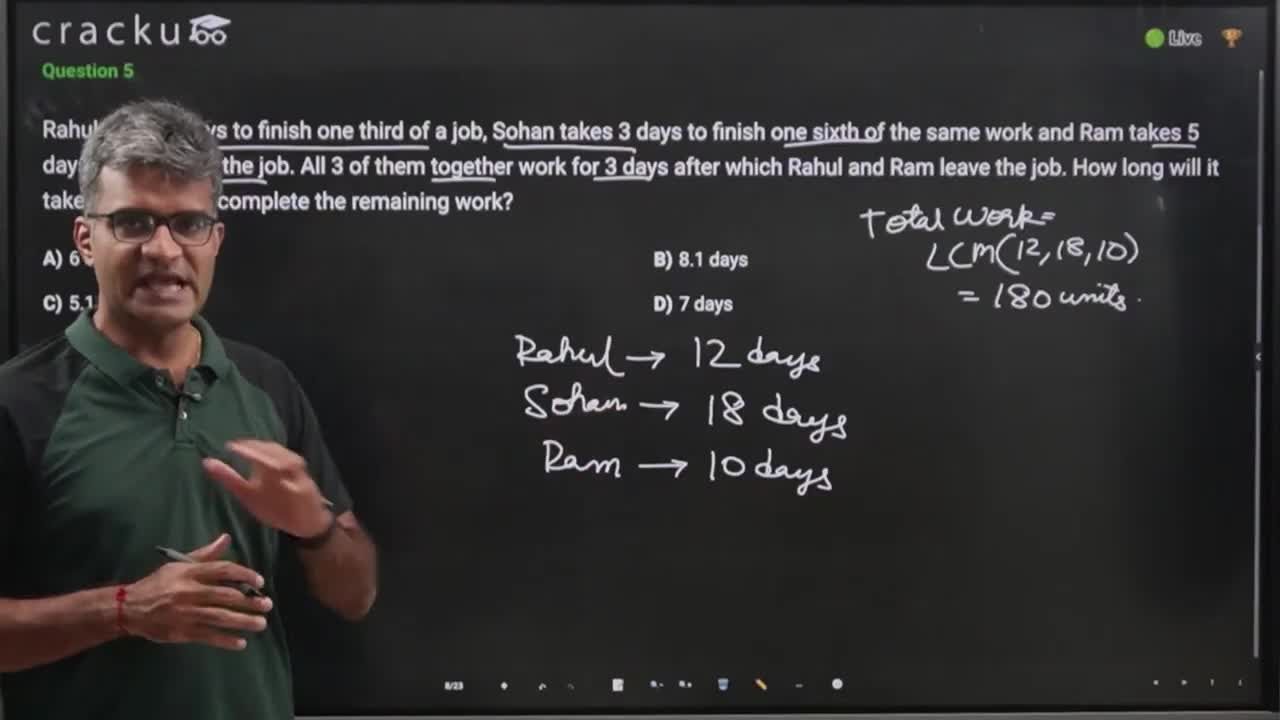 cracku
Live
Question 5
Rahul ys to finish one third of a job, Sohan takes 3 days to finish one sixth of the same work and Ram takes 5
day the job. All 3 of them together work for 3 days after which Rahul and Ram leave the job. How long will it
take complete the remaining work?
Total Work =
LCM(12,18,10)
= 180 units.
A) 6
B) 8.1 days
C) 5.1
D) 7 days
Rahul → 12 days
Sohan → 18 days
Ram → 10 days
8/23